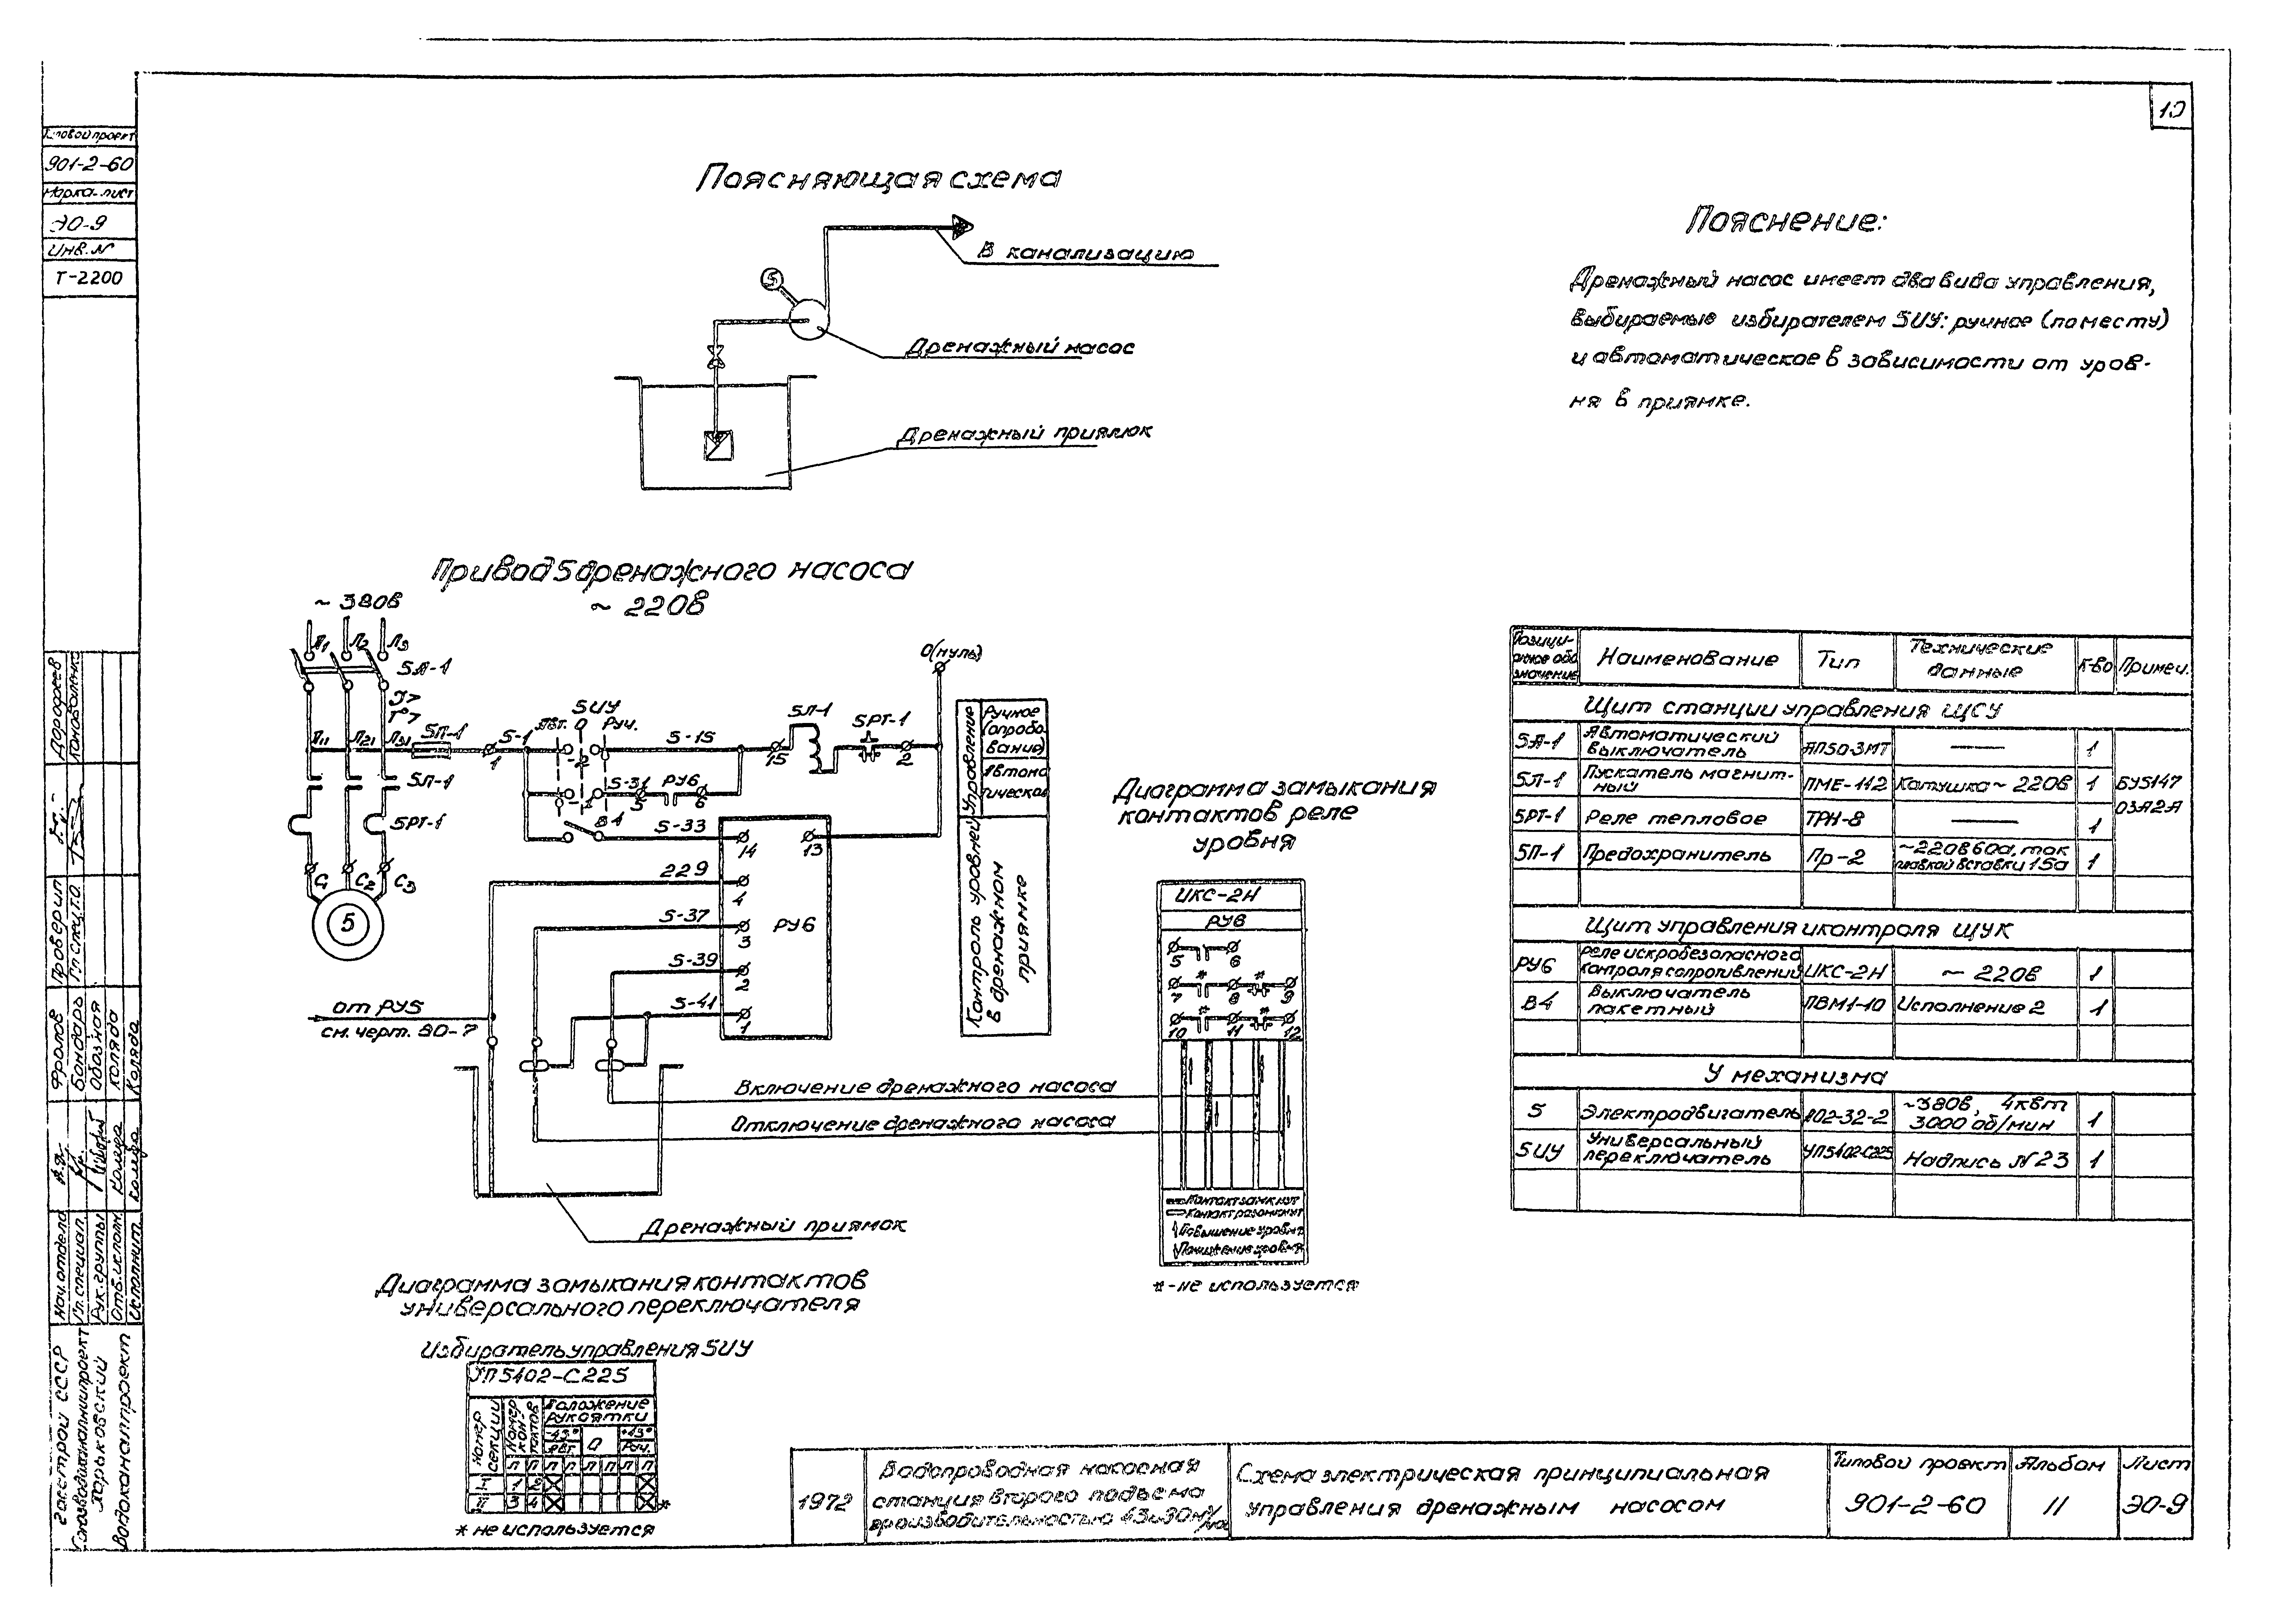 10
Типовой проект
901-2-60
Марка-лист
ЭО-9
Инв. N
Т-2200
Поясняющая схема
В канализацию
5
Дренажный насос
Дренажный приямок
Пояснение:
Дренажный насос имеет два вида управления,
выбираемые избирателем 5ИУ: ручное (по месту)
и автоматическое в зависимости от уров-
ня в приямке.
Привод 5 дренажного насоса
~ 220в
~ 380в
Л1 Л2 Л3
5А-1
I>
T°>
Л11 Л21 Л31
5П-1
5-1
1
5ИУ
Авт. О Руч.
5-15
15
5Л-1
5РТ-1
2
О(нуль)
5-31
5
РУ6
6
В4
5-33
14
13
5Л-1
5РТ-1
С1 С2 С3
5
229
4
5-37
3
РУ6
5-39
2
5-41
1
от РУ5
см. черт. ЭО-7
Управление
Ручное
(опробо
вание)
Автома
тическое
Контроль уровней
в дренажном
приямке
Включение дренажного насоса
Отключение дренажного насоса
Дренажный приямок
Диаграмма замыкания
контактов реле
уровня
ИКС-2Н
РУ6
5 6
* *
7 8 9
* *
10 11 12
Контакт замкнут
Контакт разомкнут
Повышение уровня
Понижение уровня
* - не используется
Диаграмма замыкания контактов
универсального переключателя
Избиратель управления 5ИУ
УП5402-С225
Номер секции
Номер контактов
Положение
рукоятки
-45° О +45°
Авт. Руч.
Л П Л П Л П Л П
I 1 2
II 3 4 *
* не используется
Позици-
онное обо
значение
Наименование
Тип
Технические
данные
К-во
Примеч.
Щит станции управления ЩСУ
5А-1 Автоматический выключатель АП50-3МТ — 1
5Л-1 Пускатель магнит-ный ПМЕ-112 Катушка ~ 220в 1 БУ5147
03А2А
5РТ-1 Реле тепловое ТРН-8 — 1
5П-1 Предохранитель Пр-2 ~220в 60а, ток плавкой вставки 15а 1
Щит управления и контроля ЩУК
РУ6 Реле искробезопасного контроля сопротивлений ИКС-2Н ~ 220в 1
В4 Выключатель пакетный ПВМ1-10 Исполнение 2 1
У механизма
5 Электродвигатель А02-32-2 ~380в, 4квт 3000 об/мин 1
5ИУ Универсальный переключатель УП5402-С225 Надпись N23 1
1972
Водопроводная насосная
станция второго подъема
производительностью
Схема электрическая принципиальная
управления дренажным насосом
Типовой проект
901-2-60
Альбом
II
Лист
ЭО-9
Госстрой СССР
Союзводоканалниипроект
Харьковский
Водоканалпроект
Нач. отдела
Гл. специал.
Рук. группы
Отв. исполн.
Исполнит.
Фролов
Бондарь
Обозная
Коляда
Коляда
Проверил
Гл. спец. Т.О.
Дорофеев
Коноваленко